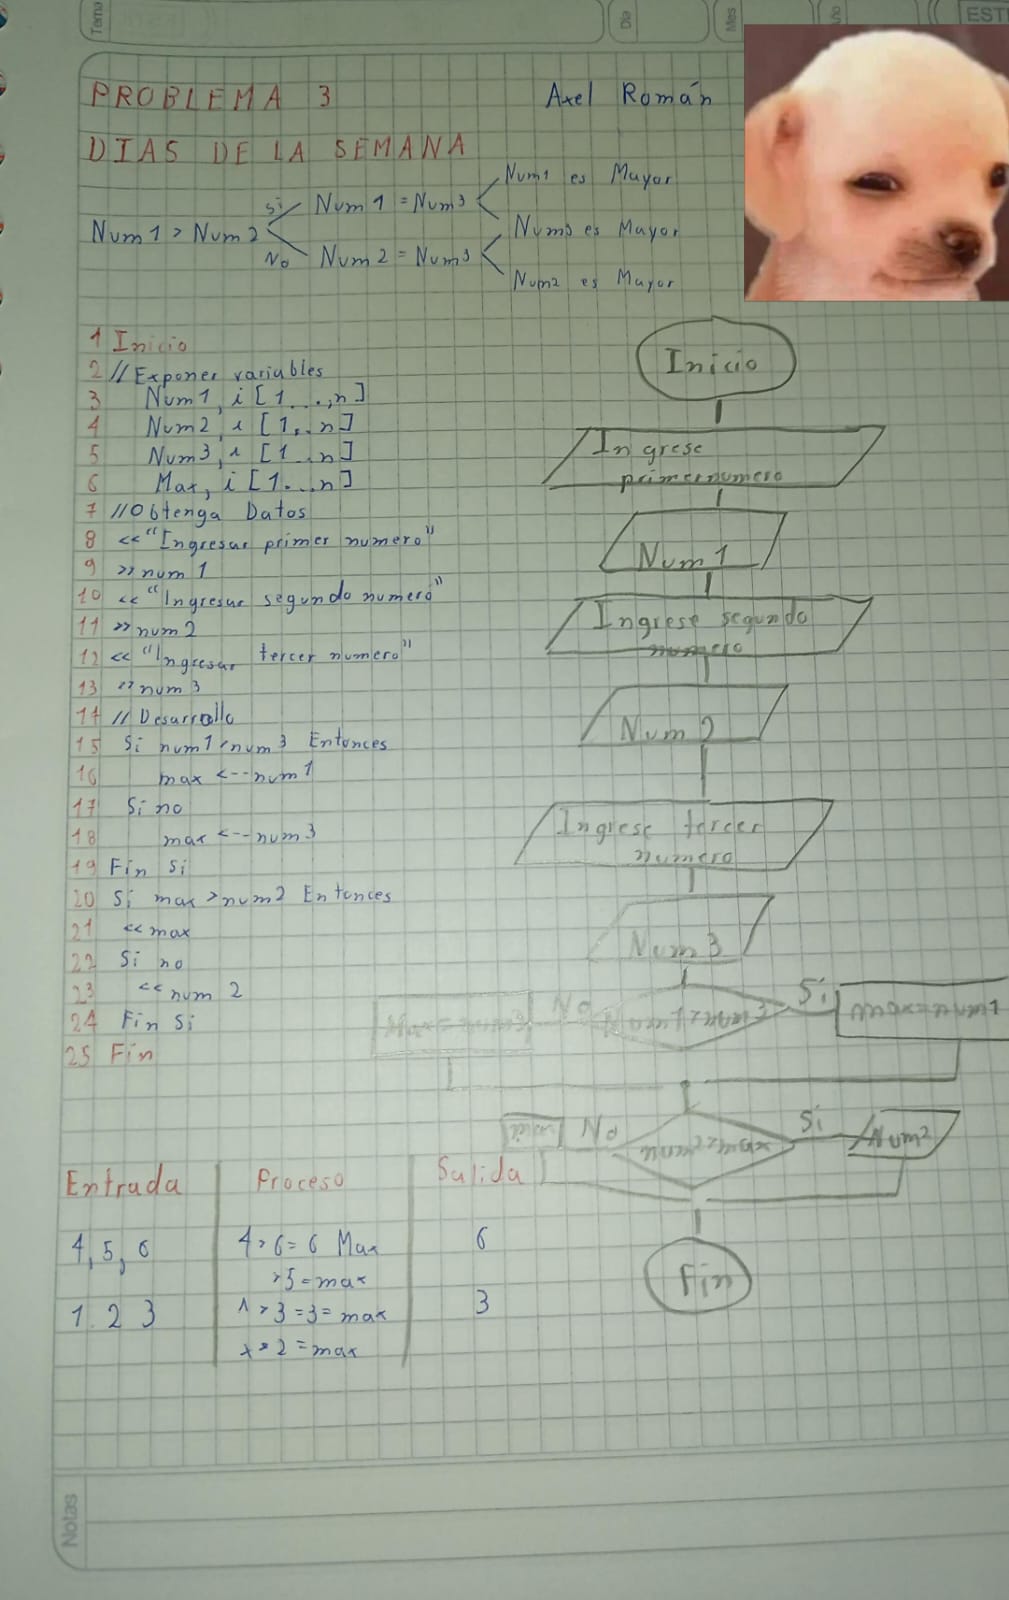 Tema
Dia
Mes
ESTI
PROBLEMA 3
Axel Román
DIAS DE LA SEMANA
Num1 > Num2
Si
Num1 = Num3
Num1 es Mayor
Num3 es Mayor
No
Num2 = Num3
Num2 es Mayor
1 Inicio
2 // Exponer variables
3 Num1, i [1...,n]
4 Num2, i [1,..n]
5 Num3, i [1..n]
6 Max, i [1...n]
7 // Obtenga Datos
8 << "Ingresar primer numero"
9 >> num1
10 << "Ingresar segundo numero"
11 >> num2
12 << "Ingresar tercer numero"
13 >> num3
14 // Desarrollo
15 Si num1 > num3 Entonces
16 max <-- num1
17 Si no
18 max <-- num3
19 Fin Si
20 Si max > num2 Entonces
21 << max
22 Si no
23 << num 2
24 Fin Si
25 Fin
Inicio
Ingrese
primer numero
Num1
Ingrese segundo
numero
Num 2
Ingrese tercer
numero
Num 3
No
Si
max=num1
No
Si
Num2
Fin
Entrada
Proceso
Salida
4, 5, 6
4>6=6 Max
6
>5=max
1 2 3
1>3=3=max
3
x>2=max
Notas